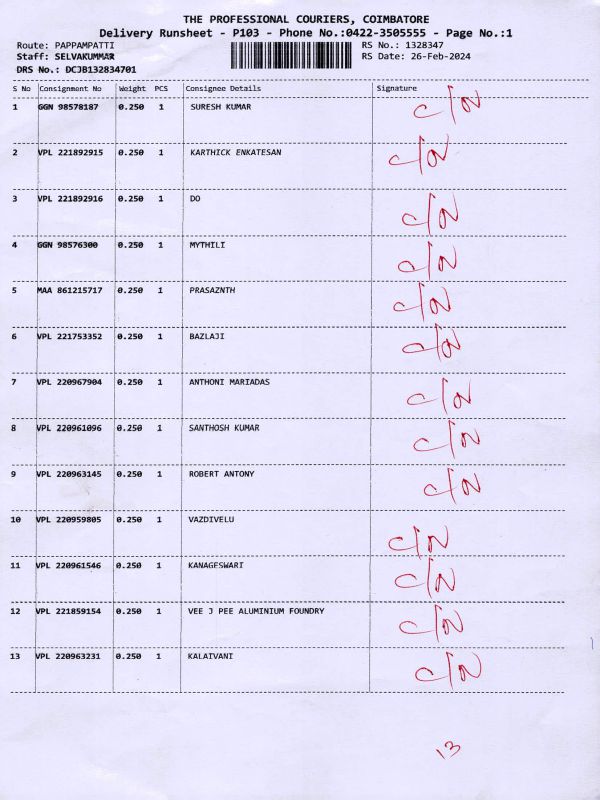 THE PROFESSIONAL COURIERS, COIMBATORE
Delivery Runsheet - P103 - Phone No.:0422-3505555 - Page No.:1
Route: PAPPAMPATTI RS No.: 1328347
Staff: SELVAKUMMAR RS Date: 26-Feb-2024
DRS No.: DCJB132834701
S No Consignment No Weight PCS Consignee Details Signature
1 GGN 98578187 0.250 1 SURESH KUMAR C/N
2 VPL 221892915 0.250 1 KARTHICK ENKATESAN C/N
3 VPL 221892916 0.250 1 DO C/N
4 GGN 98576300 0.250 1 MYTHILI C/N
5 MAA 861215717 0.250 1 PRASAZNTH C/N
6 VPL 221753352 0.250 1 BAZLAJI C/N
7 VPL 220967904 0.250 1 ANTHONI MARIADAS C/N
8 VPL 220961096 0.250 1 SANTHOSH KUMAR C/N
9 VPL 220963145 0.250 1 ROBERT ANTONY C/N
10 VPL 220959805 0.250 1 VAZDIVELU C/N
11 VPL 220961546 0.250 1 KANAGESWARI C/N
12 VPL 221859154 0.250 1 VEE J PEE ALUMINIUM FOUNDRY C/N
13 VPL 220963231 0.250 1 KALAIVANI C/N
13